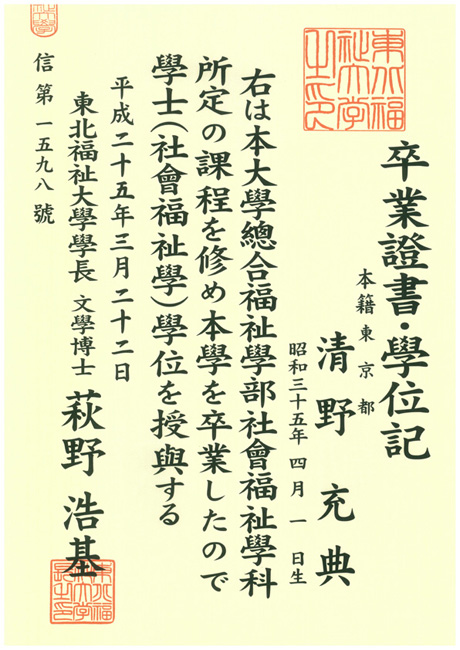 卒業證書・學位記
本籍東京都
清野充典
昭和三十五年四月一日生
右は本大學總合福祉學部社會福祉學科
所定の課程を修め本學を卒業したので
學士(社會福祉學)學位を授與する
平成二十五年三月二十二日
東北福祉大學學長 文學博士 萩野浩基
信第一五九八號
東北福
祉大学
之印
東北福
祉大学
長之印